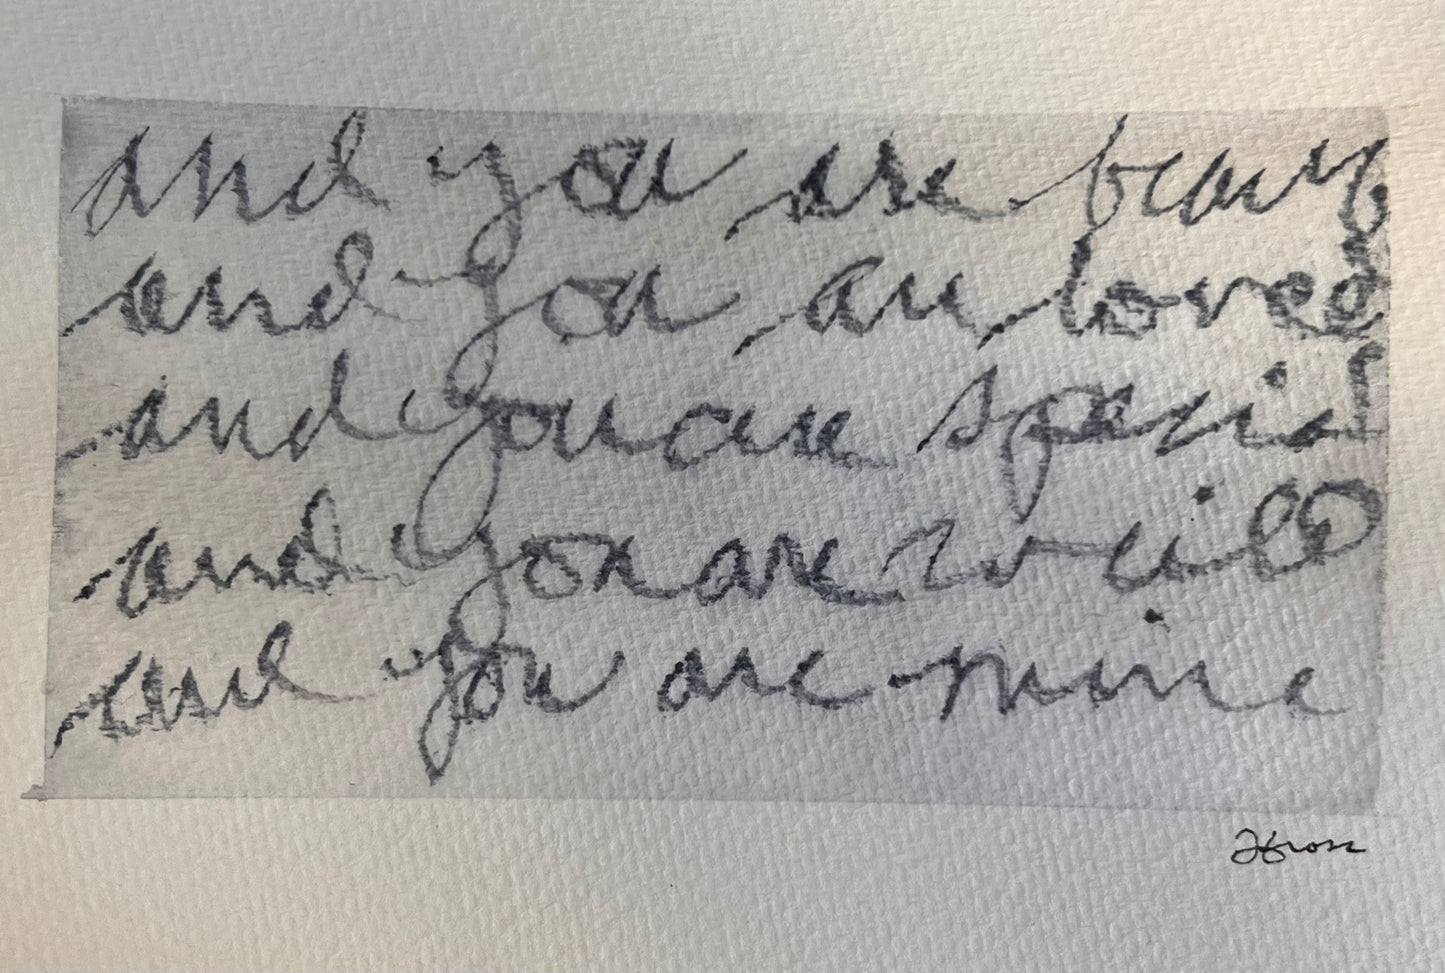 and you are
and you are loved
and you are
and you are
and you are mine